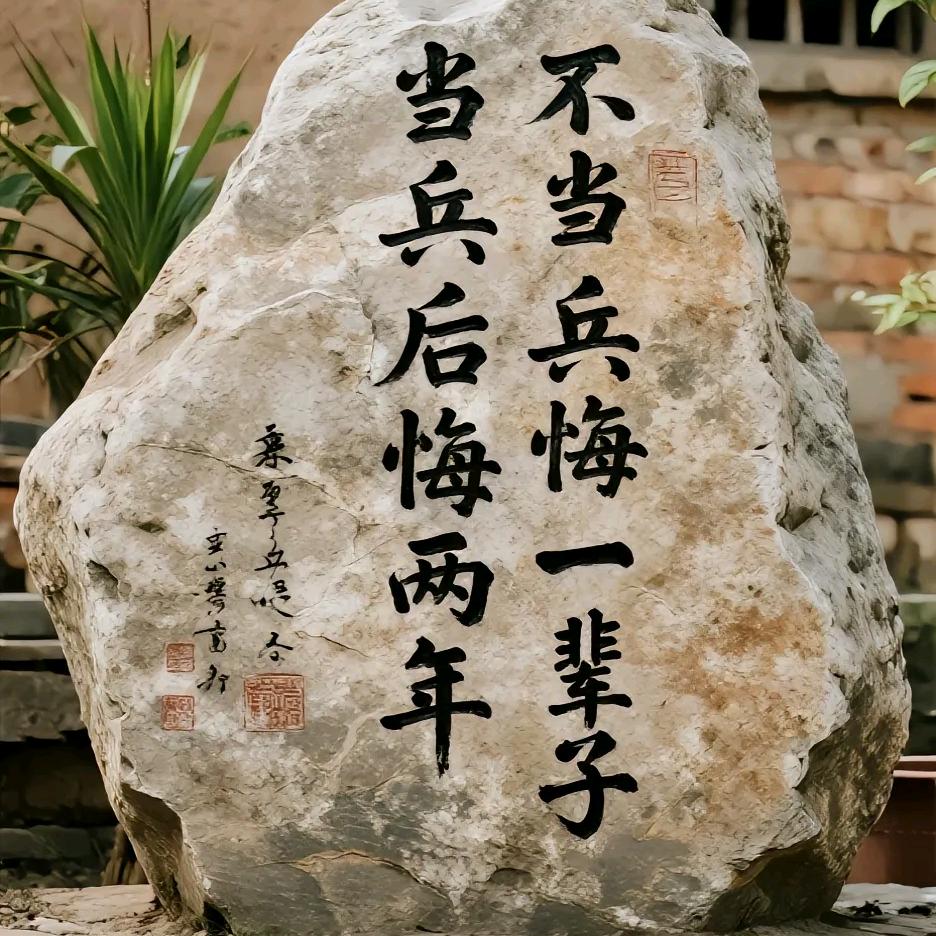 不当兵悔一辈子
当兵后悔两年